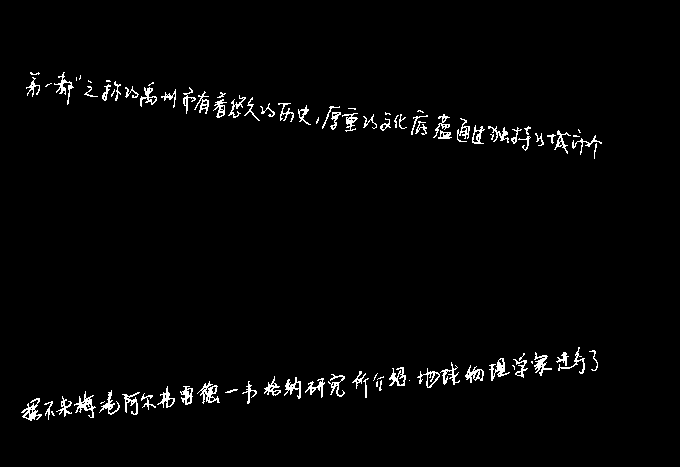 第一都"之称的禹州市有着悠久的历史,厚重的文化底蕴通过独特的城市个
据不来梅港阿尔弗雷德一韦格纳研究所介绍.地球物理学家进行了